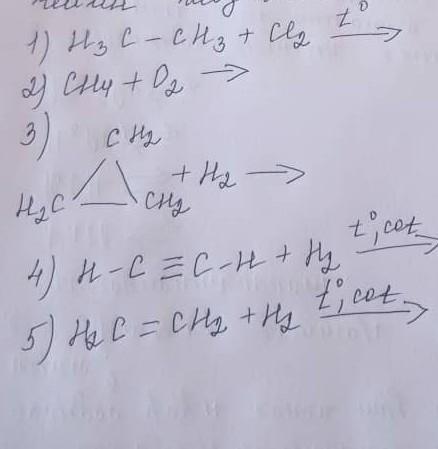 1) H₃C – CH₃ + Cl₂ t° →
2) CH₄ + O₂ →
3)
CH₂
H₂C CH₂ + H₂ →
4) H–C≡C–H + H₂ t°, cat →
5) H₂C = CH₂ + H₂ t°, cat →